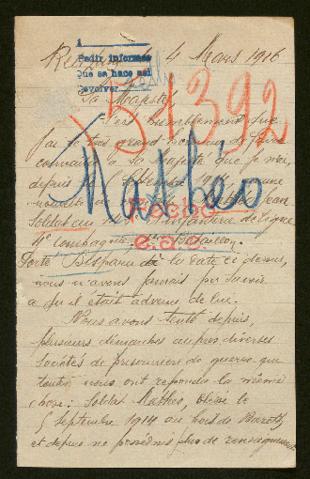 4 Mars 1916
Pedir informes
Que se hace asi
Devolver
Sa Majesté
51392
C'est tremblement que
j'ai le très grand honneur de faire
connaître à Sa Majesté que je n'ai,
depuis le 5 Septembre 1914 aucune
nouvelle de
Mattheo
Jean
Soldat au 14 d'Infanterie de Ligne
Precise
e.s.o
4e Compagnie Bataillon.
Porté Disparu à la date ci-dessus,
nous n'avons jamais pu savoir
ce qu'il était advenu de lui.
Nous avons tenté depuis,
plusieurs démarches auprès diverses
sociétés de prisonniers de guerre qui
toutes nous ont répondu la même
chose: Soldat Matheo, blessé le
5 septembre 1914 au bois de
et depuis ne possédons plus de renseignements